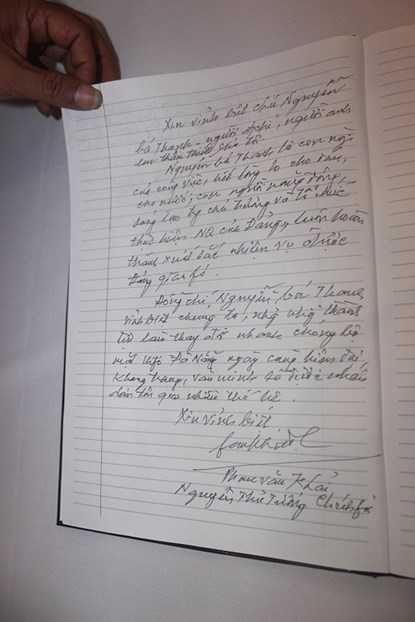 Xin vĩnh biệt chú Nguyễn
bá Thanh - người đ/chí, người anh
em thân thiết của tôi
Nguyễn bá Thanh là con người
của công việc, hết lòng lo cho dân,
cho nước; con người năng động,
sáng tạo chủ trương và tổ chức
thực hiện NQ của Đảng, luôn hoàn
thành xuất sắc nhiệm vụ được
Đảng giao phó.
Đồng chí Nguyễn bá Thanh
vĩnh biệt chúng ta, nhưng những thành
tựu làm thay đổi nhanh chóng bộ
mặt Đà Nẵng ngày càng hiện đại,
khang trang, văn minh sẽ được nhân
dân qua nhiều thế hệ.
Xin vĩnh biết
Phan văn Khải
Nguyên Thủ Tướng Chính phủ